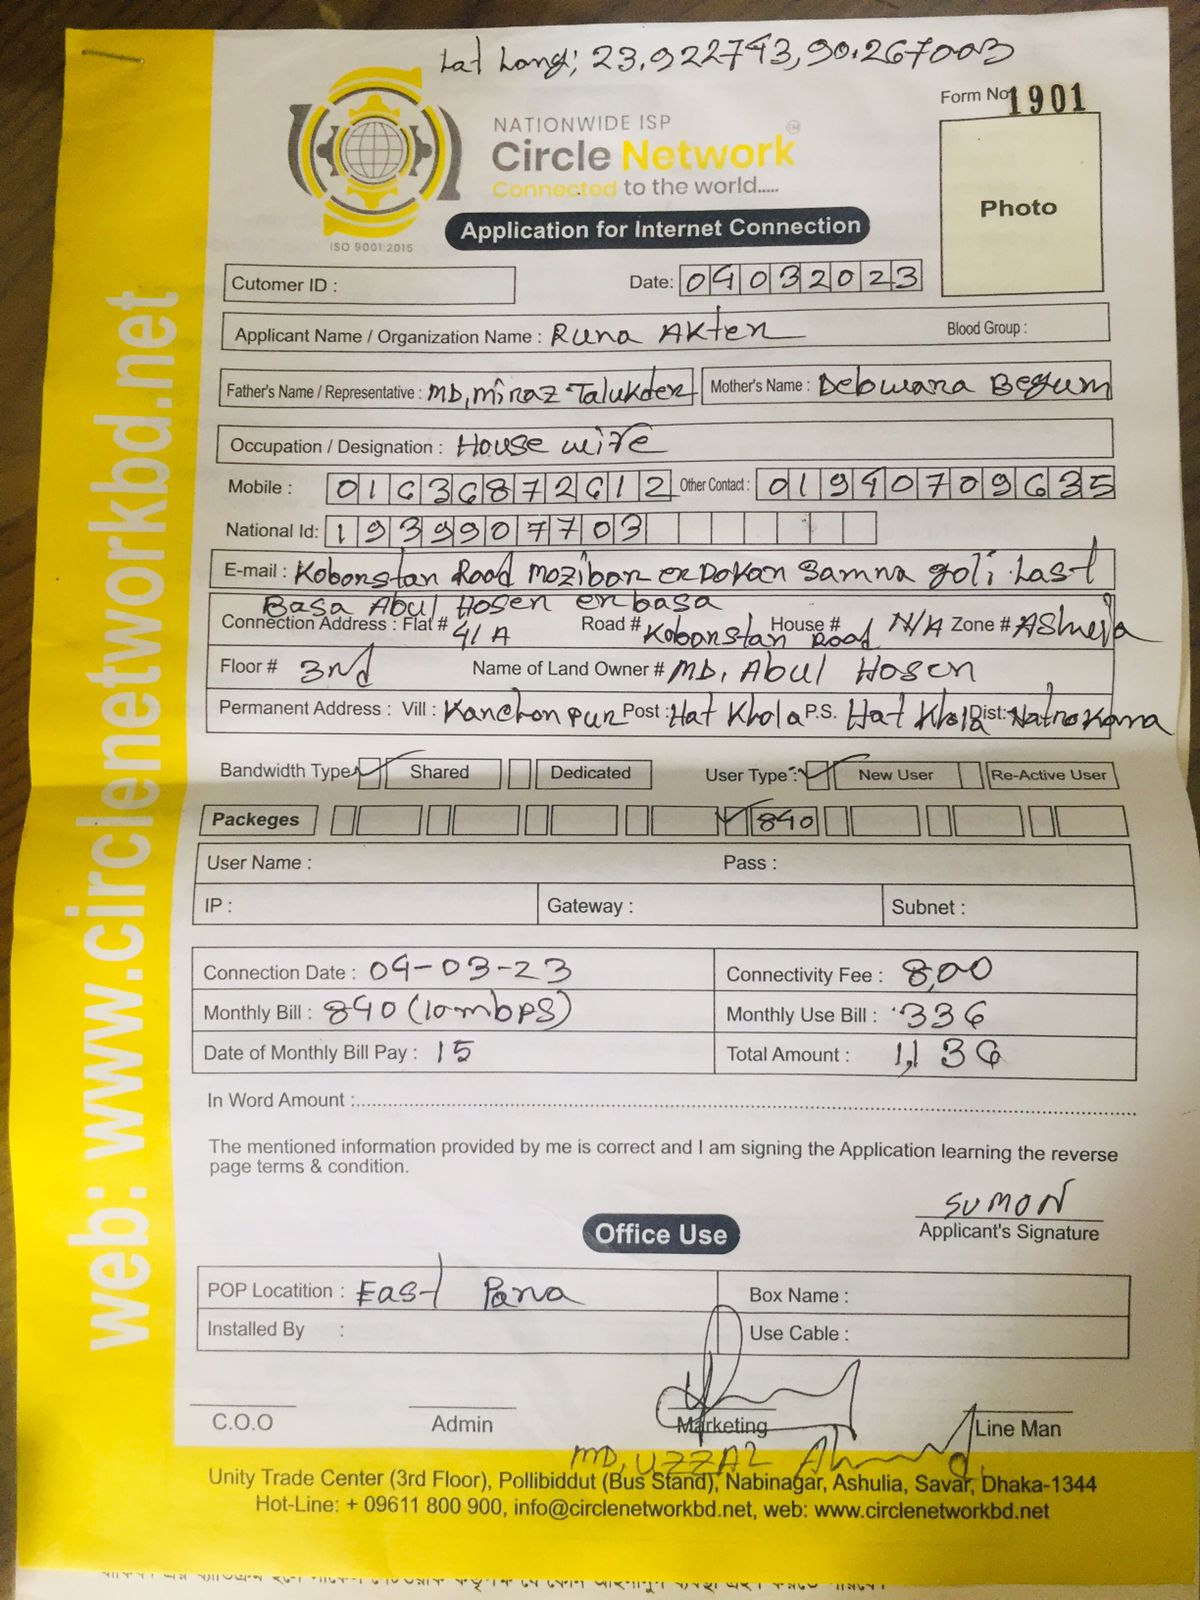 Lat Long; 23.922743,90.267003
Form No 1901
NATIONWIDE ISP
TM
Circle Network
Connected to the world.....
ISO 9001:2015
Application for Internet Connection
Photo
Cutomer ID :
Date: 04032023
Applicant Name / Organization Name : Runa Akter
Blood Group :
Father's Name / Representative : MD, Miraz Talukder
Mother's Name : Delowara Begum
Occupation / Designation : House wife
Mobile : 01636872612 Other Contact : 01940709635
National Id: 1939907703
E-mail : Kobonstan Road Mozibor er Dokan Samna goli Last
Basa Abul Hosen er basa
Connection Address : Flat # 4/A Road # Kobonstan Road House # N/A Zone # Ashulia
Floor # 3rd Name of Land Owner # MD, Abul Hosen
Permanent Address : Vill : Kanchonpur Post : Hat Khola P.S. Hat Khola Dist: Natrokona
Bandwidth Type Shared Dedicated User Type : New User Re-Active User
Packeges 840
User Name : Pass :
IP : Gateway : Subnet :
Connection Date : 04-03-23 Connectivity Fee : 8,00
Monthly Bill : 840 (10mbps) Monthly Use Bill : 336
Date of Monthly Bill Pay : 15 Total Amount : 1,136
In Word Amount :
The mentioned information provided by me is correct and I am signing the Application learning the reverse
page terms & condition.
SUMON
Applicant's Signature
Office Use
POP Locatition : East Para Box Name :
Installed By : Use Cable :
C.O.O Admin Marketing Line Man
MD, UZZAL Ahmed
Unity Trade Center (3rd Floor), Pollibiddut (Bus Stand), Nabinagar, Ashulia, Savar, Dhaka-1344
Hot-Line: + 09611 800 900, info@circlenetworkbd.net, web: www.circlenetworkbd.net
web: www.circlenetworkbd.net